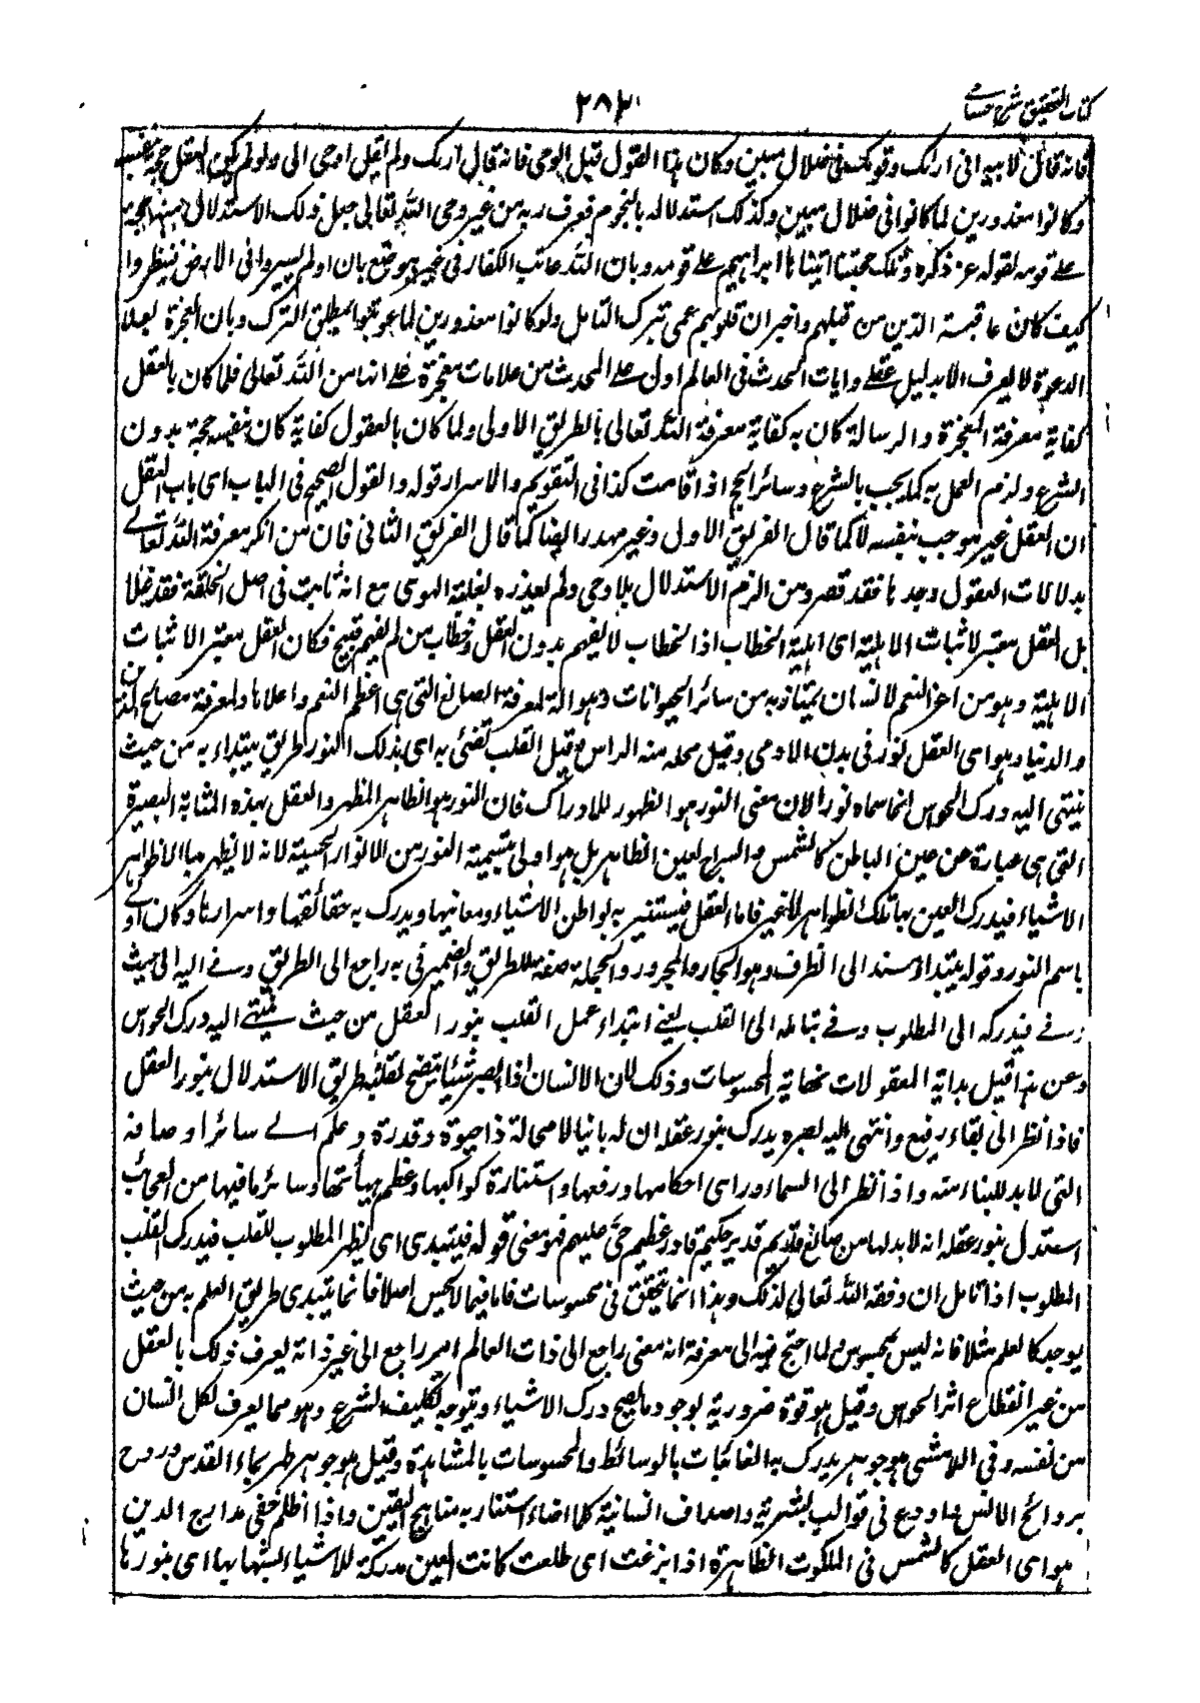 كتاب التحقيق شرح حسامي
٢٨٢
فانه قال لابيه اني اراك وقومك في ضلال مبين وكان هذا القول قبل الوحي فانه قال اراك ولم يقل اوحي الي ولو لم يكن العقل حجة بنفسه
وكانوا معذورين لما كانوا في ضلال مبين وكذلك استدلاله بالنجوم فعرف ربه من غير وحي الله تعالى جعل ذلك الاستدلال منه حجة
على قومه لقوله عز ذكره وتلك حجتنا اتيناها ابراهيم على قومه وبان الله عاتب الكفار في غير موضع بان اولم يسيروا في الارض فينظروا
كيف كان عاقبة الذين من قبلهم واخبر ان قلوبهم عمى بترك التامل ولو كانوا معذورين لما عوتبوا بمطلق الترك وبان المعجزة بعد
الدعوة لا يعرف الا بدليل عقلي وايات الحدث في العالم اول على المحدث من علامات معجزة على انها من الله تعالى فلما كان بالعقل
كفاية معرفة المعجزة والرسالة كان به كفاية معرفة الله تعالى بالطريق الاولى ولما كان بالعقول كفاية كان بنفسه حجة بدون
الشرع ولزم العمل به كما يجب بالشرع وسائر الحجج اذا قامت كذا في التقويم والاسرار قوله والقول الصحيح في الباب اي باب العقل
ان العقل غير موجب بنفسه لا كما قال الفريق الاول وغير مهدر ايضا كما قال الفريق الثاني فان من انكر معرفة الله تعالى
بدلالات العقول وحدها فقد قصر ومن الزم الاستدلال بلا وحي ولم يعذره بغلبة الهوى مع انه ثابت في اصل الخلقة فقد غلا
بل العقل معتبر لاثبات الاهلية اي اهلية الخطاب اذ الخطاب لا يفهم بدون العقل وخطاب من لم يفهم قبيح فكان العقل معتبر الاثبات
الاهلية وهو من اعز النعم لانسان يمتاز به من سائر الحيوانات وهو الة لمعرفة الصانع التي هي اعظم النعم واعلاها ولمعرفة مصالح الدين
والدنيا وهو اي العقل نور في بدن الادمي وقيل محله منه الراس وقيل القلب تضئ به اي بذلك النور طريق يبتداء به من حيث
ينتهي اليه درك الحواس انما سماه نورا لان معنى النور هو الظهور للادراك فان النور هو الظاهر المظهر والعقل بهذه المثابة البصيرة
التي هي عبارة عن عين الباطن كالشمس والسراج لعين الظاهر بل هو اولى بتسمية النور من الانوار الحسية لانه لا يظهر بها الا ظواهر
الاشياء فيدرك العين بها تلك الظواهر لا غير فاما العقل فيستنير به بواطن الاشياء ومعانيها ويدرك به حقائقها واسرارها وكان اولى
باسم النور وقوله يبتداء مسند الى الظرف وهو الجار والمجرور والجملة صفة للطريق والضمير في به راجع الى الطريق وفي اليه الى حيث
وفي فيدركه الى المطلوب وفي تبامله الى القلب يعني ابتداء عمل القلب بنور العقل من حيث ينتهي اليه درك الحواس
وعن هذا قيل بداية المعقولات نهاية المحسوسات وذلك لان الانسان اذا ابصر شيئا يتضح لقلبه طريق الاستدلال بنور العقل
فاذا نظر الى بناء رفيع وانتهى اليه بصره يدرك بنور عقله ان له بانيا لا محالة ذا حيوة وقدرة وعلم الى سائر اوصافه
التي لا بد للبناء منه واذا نظر الى السماء وراى احكامها ورفعها واستنارة كواكبها وعظم هيأتها وسائر ما فيها من العجائب
استدل بنور عقله انه لا بد لها من صانع قديم قدير حكيم قادر عظيم حي عليم فهو معنى قوله فيبتدى اي يظهر المطلوب للقلب فيدرك القلب
المطلوب اذا تامل ان وفقه الله تعالى لذلك وهذا انما يتحقق في محسوسات فاما فيما لا يحس اصلا فانما يبتدى طريق العلم به من حيث
يوجد كالعلم مثلا فانه ليس بمحسوس ولما احتج فيه الى معرفة انه معنى راجع الى ذات العالم امر راجع الى غير ذاته يعرف ذلك بالعقل
من غير انقطاع اثر الحواس وقيل هو قوة ضرورية بوجودها يصح درك الاشياء ويتوجه تكليف الشرع وهو مما يعرف لكل انسان
من نفسه وفي اللامشي هو جوهر يدرك به الغائبات بالوسائط والمحسوسات بالمشاهدة وقيل هو جوهر طهر بماء القدس وروح
بروائح الانس واودع في قوالب بشرية واصداف انسانية كلما اضاء استنار به مناهج اليقين واذا اظلم خفي مدارج الدين
هو اي العقل كالشمس في الملكوت الظاهرة اذا بزغت اي طلعت كانت العين مدركة للاشياء بشهابها اي بنورها